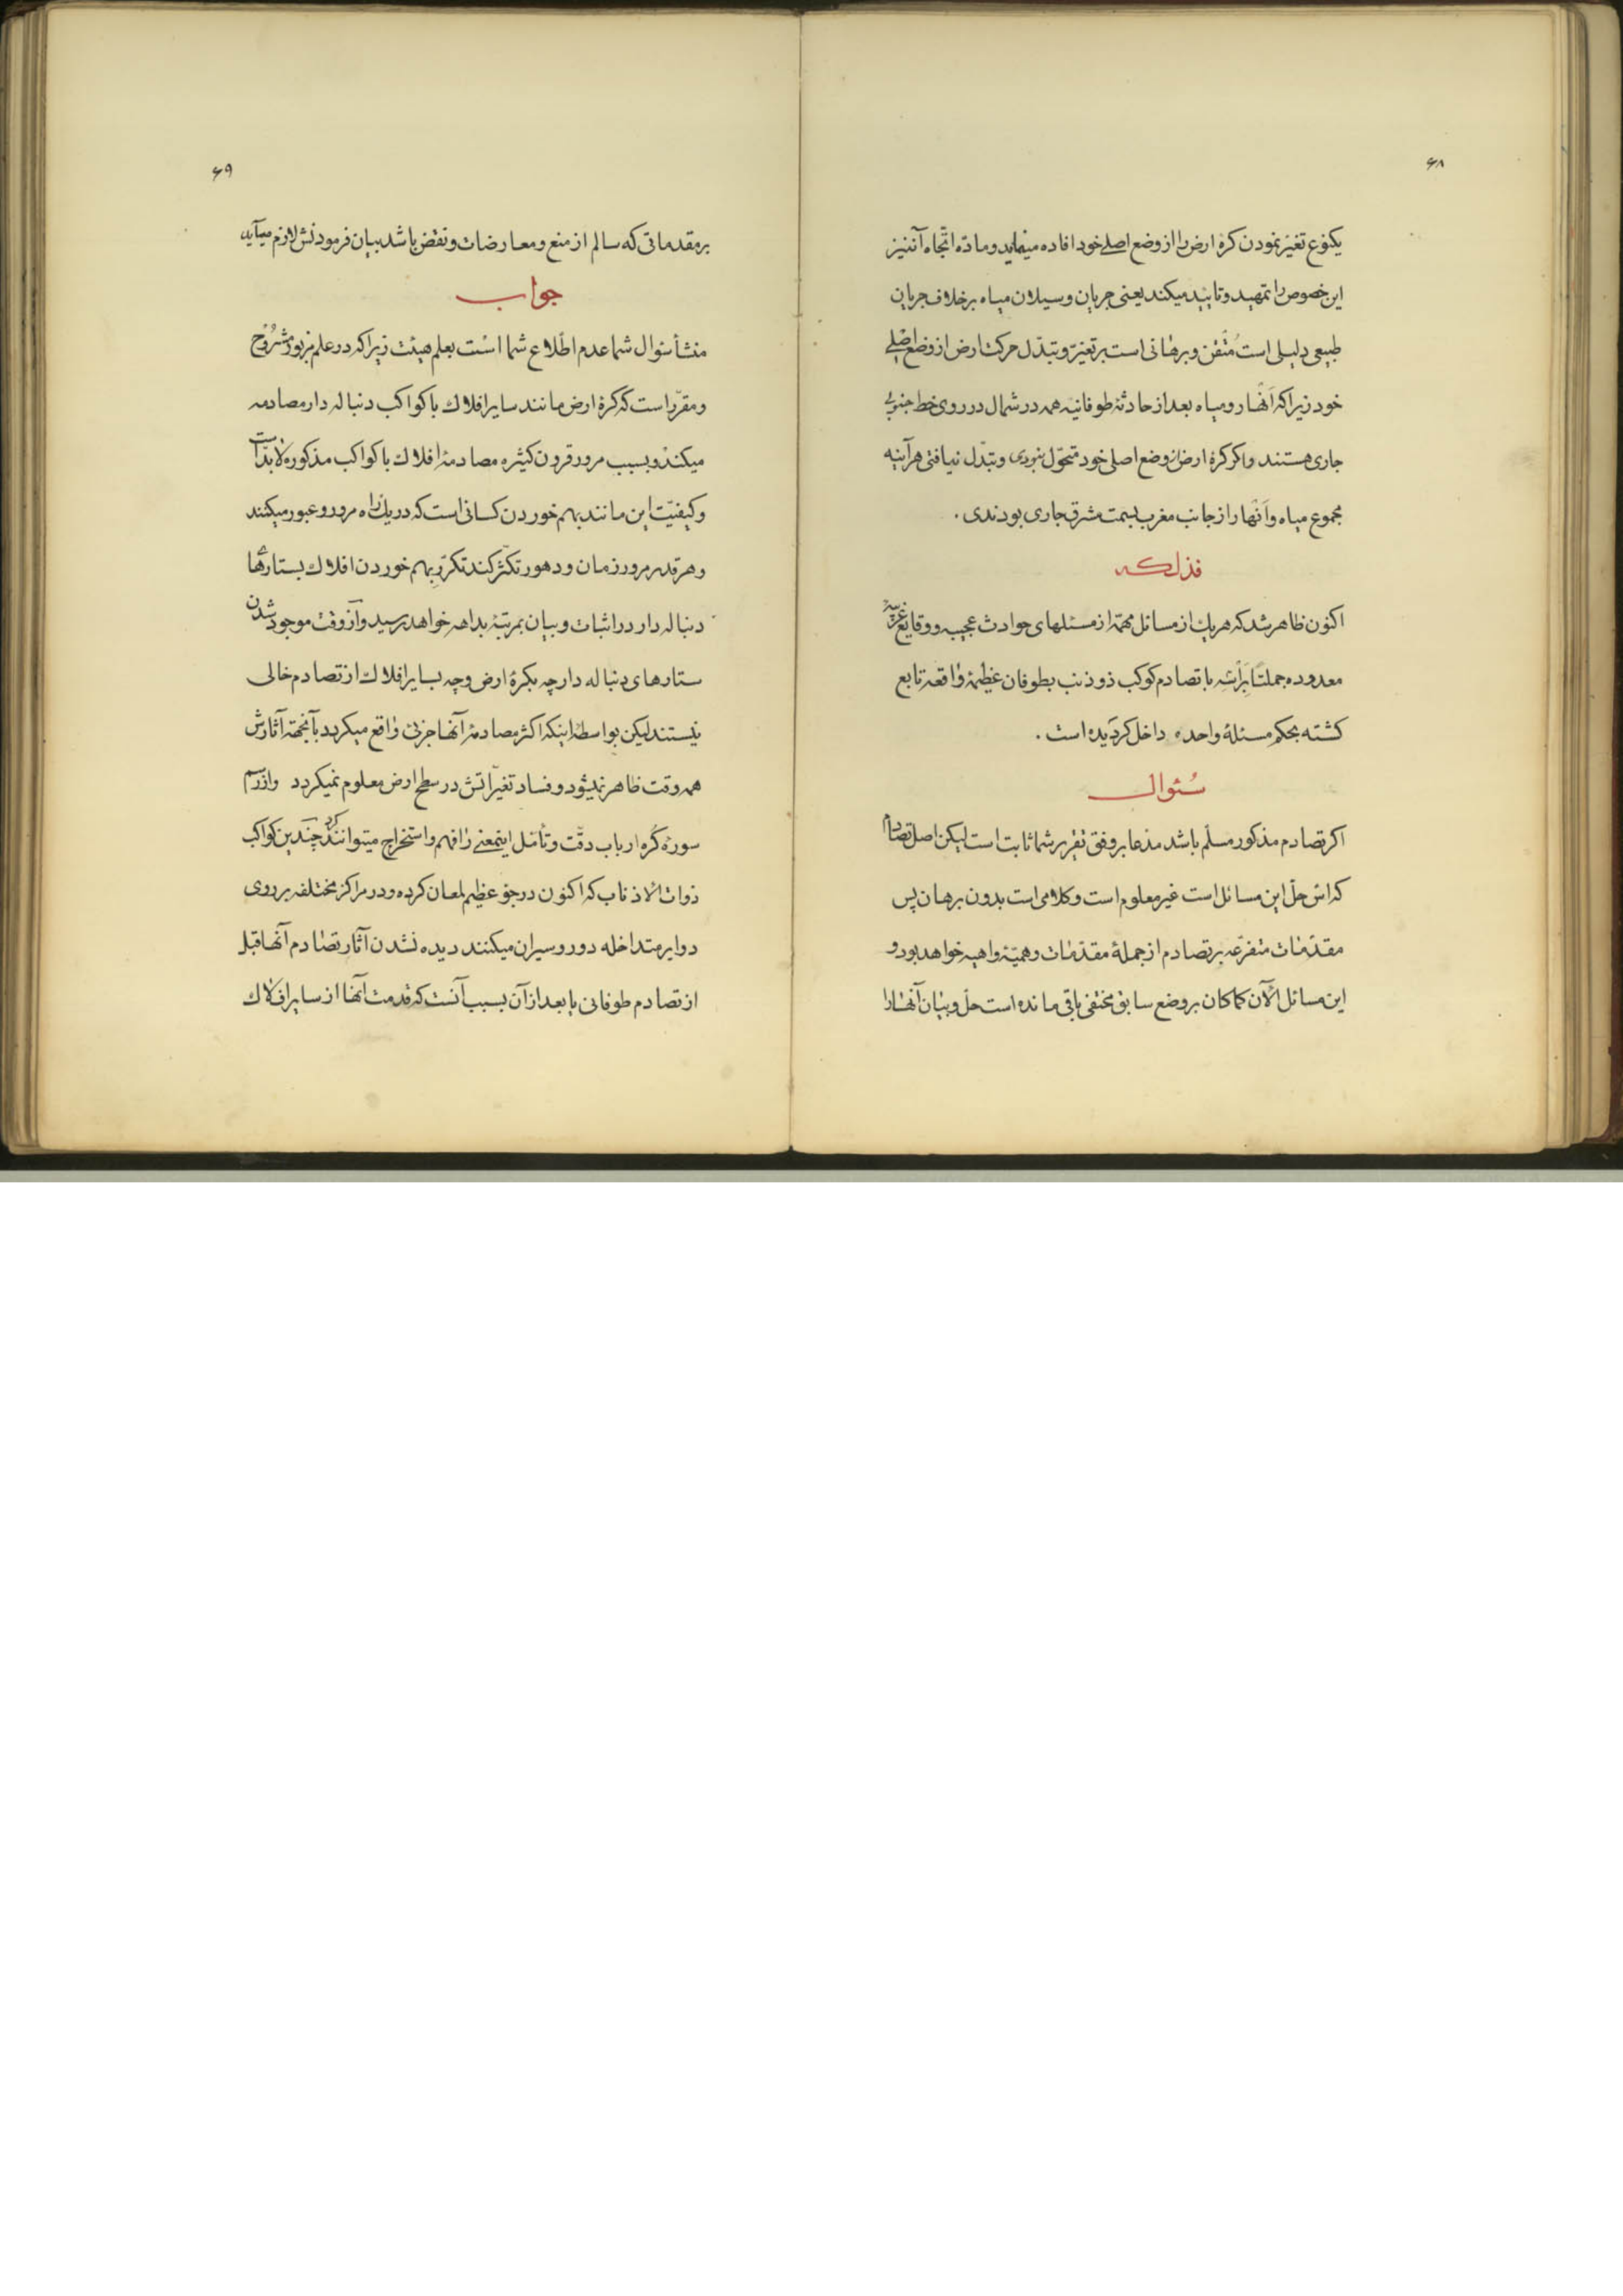 ۶۸
یکنوع تغیّر نمودن کره ارض را از وضع اصلے خود افاده مینماید و مادّه اتّجاه آننیز
این خصوص را تمهید و تایید میکند یعنی جریان و سیلان میاه برخلاف جریان
طبیعی دلیلی است مُتْقن و برهانی است بر تغیّر و تبدّل حرکت ارض از وضع اصلے
خود زیرا که اَنْهار و میاه بعد از حادثهٔ طوفانیّه همه در شمال در روی خط جنوبی
جاری هستند و اکر کرهٔ ارض از وضع اصلی خود متحوّل نبودی و تبدّل نیافتی هرآینه
مجموع میاه و اَنْهار از جانب مغرب بسمت مشرق جاری بودندی .
فذلکه
اکنون ظاهر شد که هریك از مسائل مهمّه از مسئلهای حوادث عجیبه و وقایع غریبهٔ
معدوده جملتًا با تصادم کوکب ذو ذنب بطوفان عظیمهٔ واقعه تابع
کشته بحکم مسئلهٔ واحده داخل کردیده است .
سُئوال
اکر تصادم مذکور مسلّم باشد مدّعا بر وفق تقریر شما ثابت است لیکن اصل تصادم
که اسّ حلّ این مسائل است غیر معلوم است و کلامی است بدون برهان پس
مقدّمات متفرّعه بر تصادم از جملهٔ مقدّمات وهمیّهٔ واهیه خواهد بود و
این مسائل الآن کماکان بر وضع سابق مختفی باقی مانده است حلّ و بیان آنها را
۶۹
بر مقدماتی که سالم از منع و معارضات و نقض باشد بیان فرمودنش لازم میآید
جواب
منشأ سئوال شما عدم اطّلاع شما است بعلم هیئت زیرا که در علم مزبور مشروح
و مقرّر است که کرهٔ ارض مانند سایر افلاك با کواکب دنباله دار مصادمه
میکند و بسبب مرور قرون کثیره مصادمهٔ افلاك با کواکب مذکوره لابدّ است
و کیفیّت این مانند بهم خوردن کسانی است که در یك راه مرور و عبور میکنند
و هر قدر مرور زمان و دهور تکثّر کند تکرّر بهم خوردن افلاك بستارهٔ‌ها
دنباله دار در اثبات و بیان بمرتبهٔ بداهه خواهد رسید و آنوقت موجود شدن
ستارهای دنباله دار چه بکرهٔ ارض و چه بسایر افلاك از تصادم خالی
نیستند لیکن بواسطهٔ اینکه اکثر مصادمهٔ آنها جزئی واقع میکردد بآنجهة آثارش
همه وقت ظاهر نمیشود و فساد تغیّراتش در سطح ارض معلوم نمیکردد و از رسم
سورهٔ کُره ارباب دقّت و تأمّل اینمعنے را فهم و استخراج میتوانند کرد چندین کواکب
ذوات الاذناب که اکنون در جوّ عظیم لمعان کرده و در مراکز مختلفه بر روی
دوایر متداخله دور و سیران میکنند دیده نشدن آثار تصادم آنها قبل
از تصادم طوفانی یا بعد از آن بسبب آنست که قدمت آنها از سایر افلاك